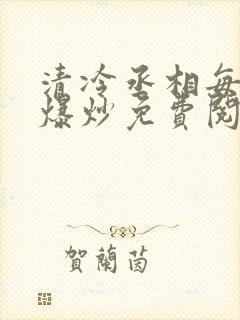 清冷丞相每
爆炒免費閱
賀蘭茵